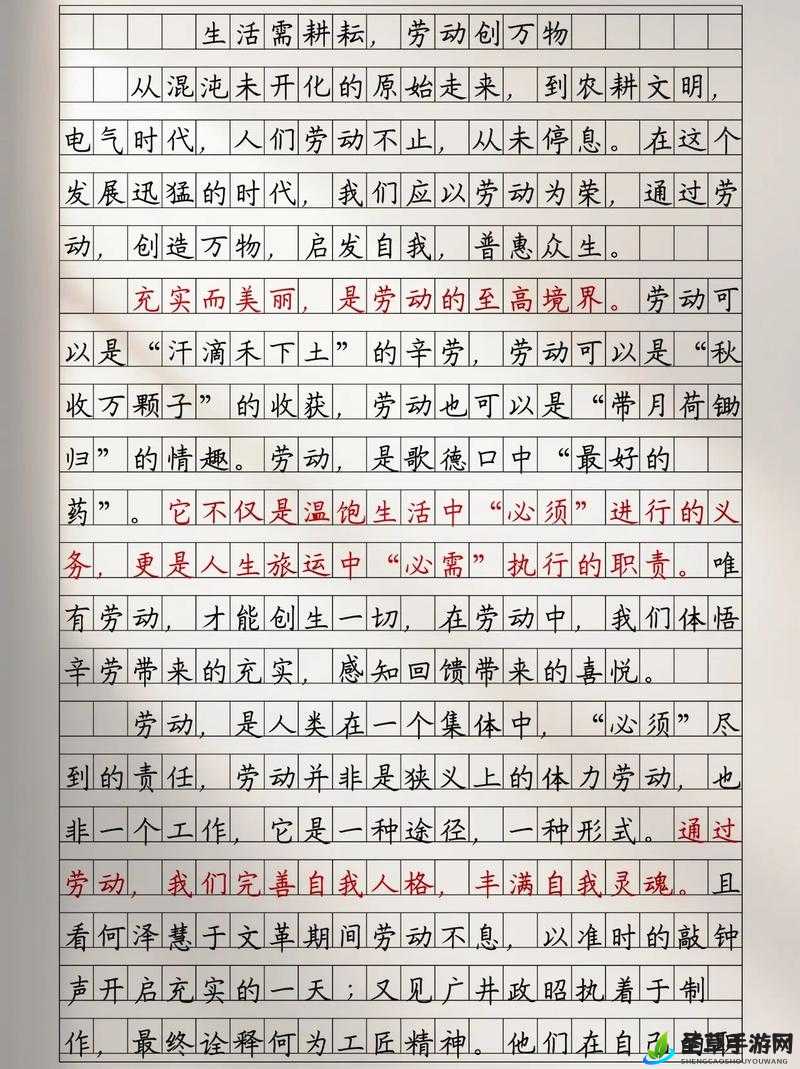 生活需耕耘，劳动创万物
从混沌未开化的原始走来，到农耕文明，
电气时代，人们劳动不止，从未停息。在这个
发展迅猛的时代，我们应以劳动为荣，通过劳
动，创造万物，启发自我，普惠众生。
充实而美丽，是劳动的至高境界。劳动可
以是“汗滴禾下土”的辛劳，劳动可以是“秋
收万颗子”的收获，劳动也可以是“带月荷锄
归”的情趣。劳动，是歌德口中“最好的
药”。它不仅是温饱生活中“必须”进行的义
务，更是人生旅运中“必需”执行的职责。唯
有劳动，才能创生一切，在劳动中，我们体悟
辛劳带来的充实，感知回馈带来的喜悦。
劳动，是人类在一个集体中，“必须”尽
到的责任，劳动并非是狭义上的体力劳动，也
非一个工作，它是一种途径，一种形式。通过
劳动，我们完善自我人格，丰满自我灵魂。且
看何泽慧于文革期间劳动不息，以准时的敲钟
声开启充实的一天；又见广井政昭执着于制
作，最终诠释何为工匠精神。他们在自己
圣草手游网
SHENGCAOSHOUYOUWANG